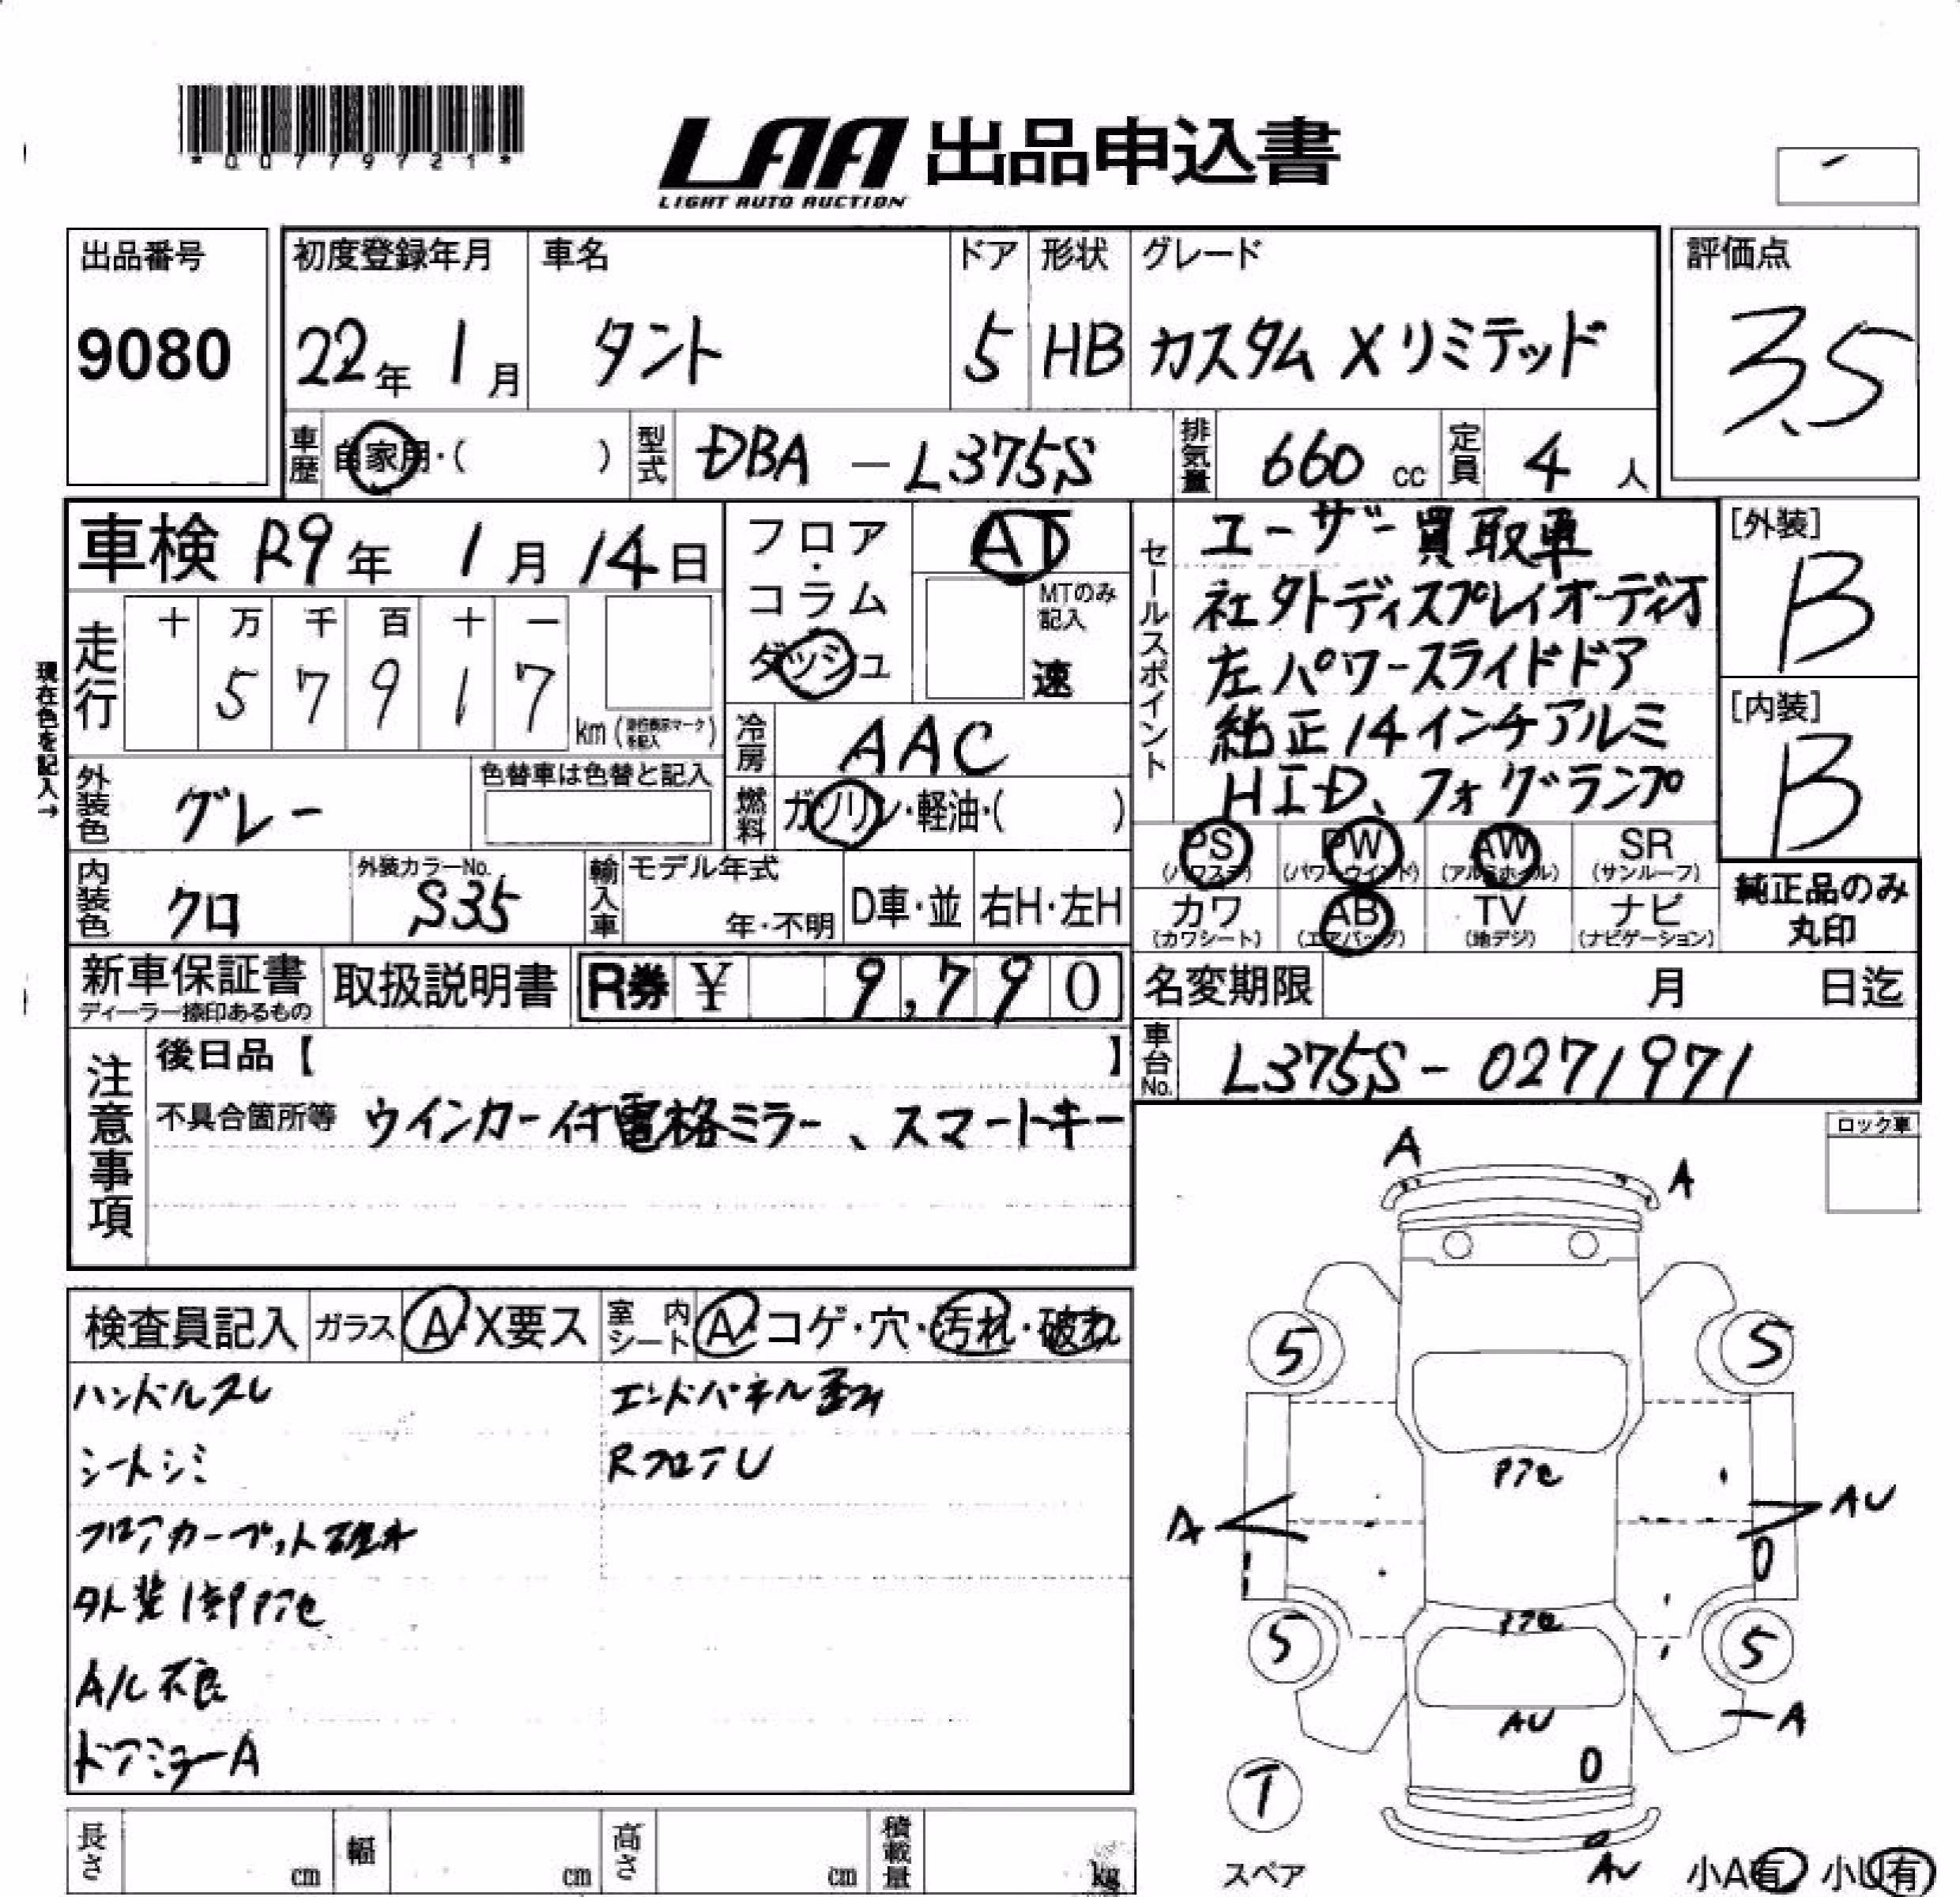 *00779721*
LAA 出品申込書
LIGHT AUTO AUCTION
出品番号 初度登録年月 車名 ドア 形状 グレード 評価点
9080 22年 1月 タント 5 HB カスタム X リミテッド 3.5
車歴 自家用・( ) 型式 DBA - L375S 排気量 660 cc 定員 4 人
車検 R9年 1月 14日
フロア・コラム・ダッシュ AT
MTのみ記入 速
セールスポイント
ユーザー買取車
社外ディスプレイオーディオ
左パワースライドドア
純正14インチアルミ
HID、フォグランプ
[外装]
B
[内装]
B
現在色を記入→
走行 十 万 千 百 十 一
5 7 9 1 7 km
冷房 AAC
外装色 グレー 色替車は色替と記入
燃料 ガソリン・軽油・( )
PS PW AW SR
(パワステ) (パワーウインド) (アルミホイル) (サンルーフ)
カワ AB TV ナビ
(カワシート) (エアバッグ) (地デジ) (ナビゲーション)
純正品のみ
丸印
内装色 クロ 外装カラーNo. S35 輸入車 モデル年式 年・不明 D車・並 右H・左H
新車保証書 取扱説明書 R券 ¥ 9,790
ディーラー捺印あるもの
名変期限 月 日迄
車台No. L375S-0271971
注意事項
後日品【 】
不具合箇所等 ウインカー付電格ミラー、スマートキー
ロック車
検査員記入 ガラス A・X要ス 室内シート A・コゲ・穴・汚れ・破れ
ハンドルスレ エンドパネル歪み
シートシミ RフロアU
フロアカーペット破れ
外装1部アセ
A/C不良
ドアミラーA
A
A
5 5
アセ
A AU
0
アセ
5 5
AU A
0
T
スペア
AU
小A有 小U有
長さ cm 幅 cm 高さ cm 積載量 kg